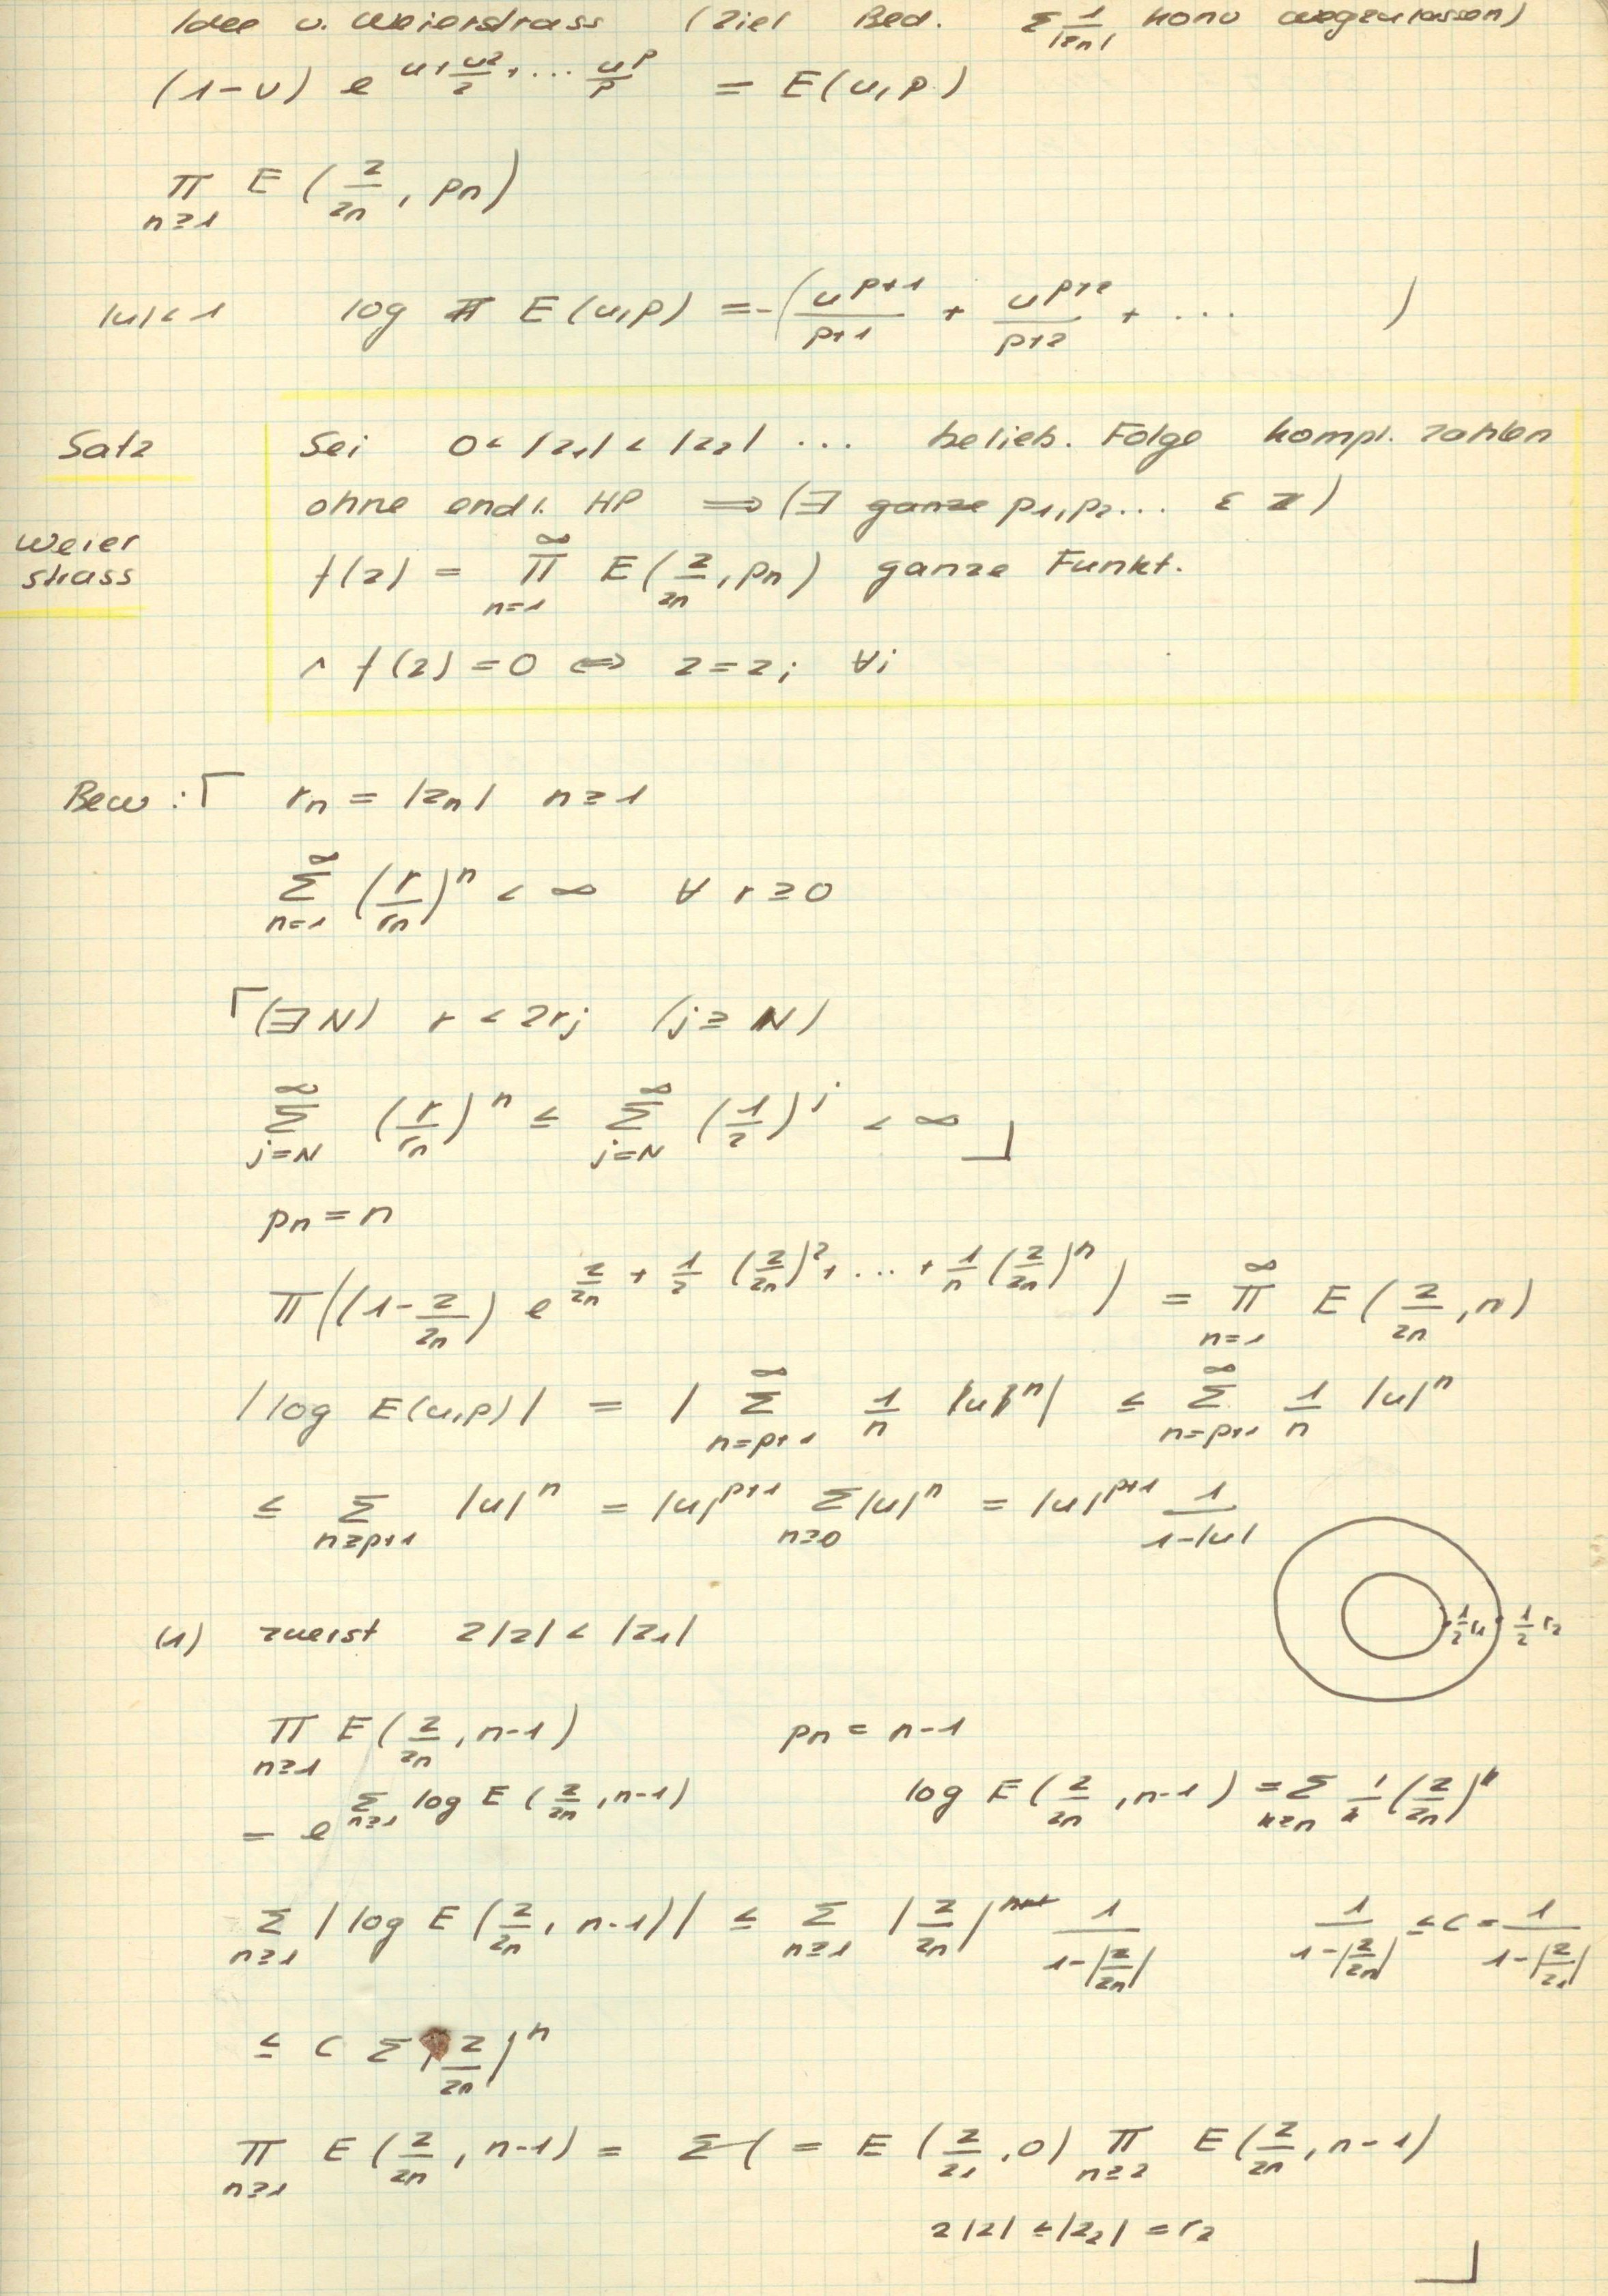 Idee v. Weierstrass (Ziel Bed. Σ 1/|zn| konv wegzulassen)
(1-u) e^(u+u²/2+...u^p/p) = E(u,p)
Π_(n≥1) E(z/zn, pn)
|u|<1 log E(u,p) = -(u^(p+1)/(p+1) + u^(p+2)/(p+2) + ... )
Satz Sei 0<|z1|<|z2| ... belieb. Folge kompl. Zahlen
ohne endl. HP ⟹ (∃ ganze p1,p2... ε Z)
Weier
strass f(z) = Π_(n=1)^∞ E(z/zn, pn) ganze Funkt.
∧ f(z)=0 ⟺ z=zi ∀i
Bew:⌈ rn = |zn| n≥1
Σ_(n=1)^∞ (r/rn)^n < ∞ ∀ r≥0
⌈(∃N) r < 2rj (j≥N)
Σ_(j=N)^∞ (r/rn)^n ≤ Σ_(j=N)^∞ (1/2)^j < ∞ ⌋
pn = n
Π((1-z/zn) e^(z/zn + 1/2 (z/zn)² + ... + 1/n (z/zn)^n)) = Π_(n=1)^∞ E(z/zn, n)
|log E(u,p)| = |Σ_(n=p+1)^∞ 1/n u^n| ≤ Σ_(n=p+1)^∞ 1/n |u|^n
≤ Σ_(n≥p+1) |u|^n = |u|^(p+1) Σ_(n≥0) |u|^n = |u|^(p+1) 1/(1-|u|)
(1) zuerst 2|z| < |z1| 1/2 r1 1/2 r2
Π_(n≥1) E(z/zn, n-1) pn = n-1
= e^(Σ_(n≥1) log E(z/zn, n-1)) log E(z/zn, n-1) = Σ_(k≥n) 1/k (z/zn)^k
Σ_(n≥1) |log E(z/zn, n-1)| ≤ Σ_(n≥1) |z/zn|^n 1/(1-|z/zn|) 1/(1-|z/zn|) ≤ C = 1/(1-|z/z1|)
≤ C Σ |z/zn|^n
Π_(n≥1) E(z/zn, n-1) = Σ( = E(z/z1, 0) Π_(n≥2) E(z/zn, n-1)
2|z| ≤ |z2| = r2 ⌋